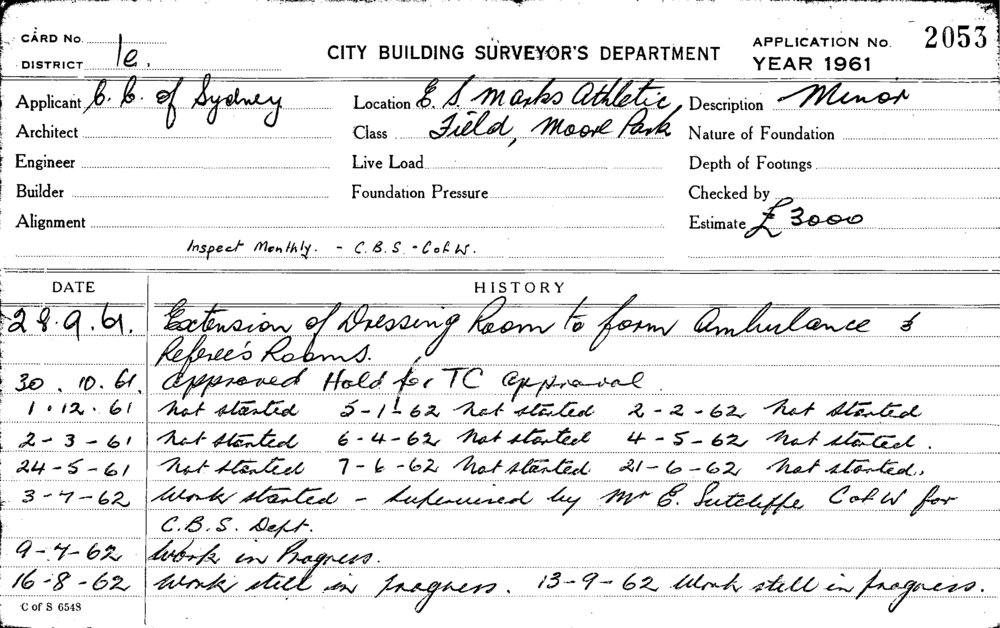 CARD No.
DISTRICT 1e.
CITY BUILDING SURVEYOR'S DEPARTMENT
APPLICATION No. 2053
YEAR 1961
Applicant C. C. of Sydney
Location E. S. Marks Athletic
Description Minor
Architect
Class Field, Moore Park
Nature of Foundation
Engineer
Live Load
Depth of Footings
Builder
Foundation Pressure
Checked by
Alignment
Estimate £3000
Inspect Monthly. - C.B.S. - C of W.
DATE HISTORY
28.9.61. Extension of Dressing Room to form Ambulance &
Referee's Rooms.
30.10.61. Approved Hold for TC approval.
1.12.61 Not started 5-1-62 Not started 2-2-62 Not started
2-3-61 Not started 6-4-62 Not started 4-5-62 Not started.
24-5-61 Not started 7-6-62 Not started 21-6-62 Not started.
3-7-62 Work started - supervised by Mr E. Sutcliffe C of W for
C.B.S. Dept.
9-7-62 Work in Progress.
16-8-62 Work still in progress. 13-9-62 Work still in progress.
C of S 6548